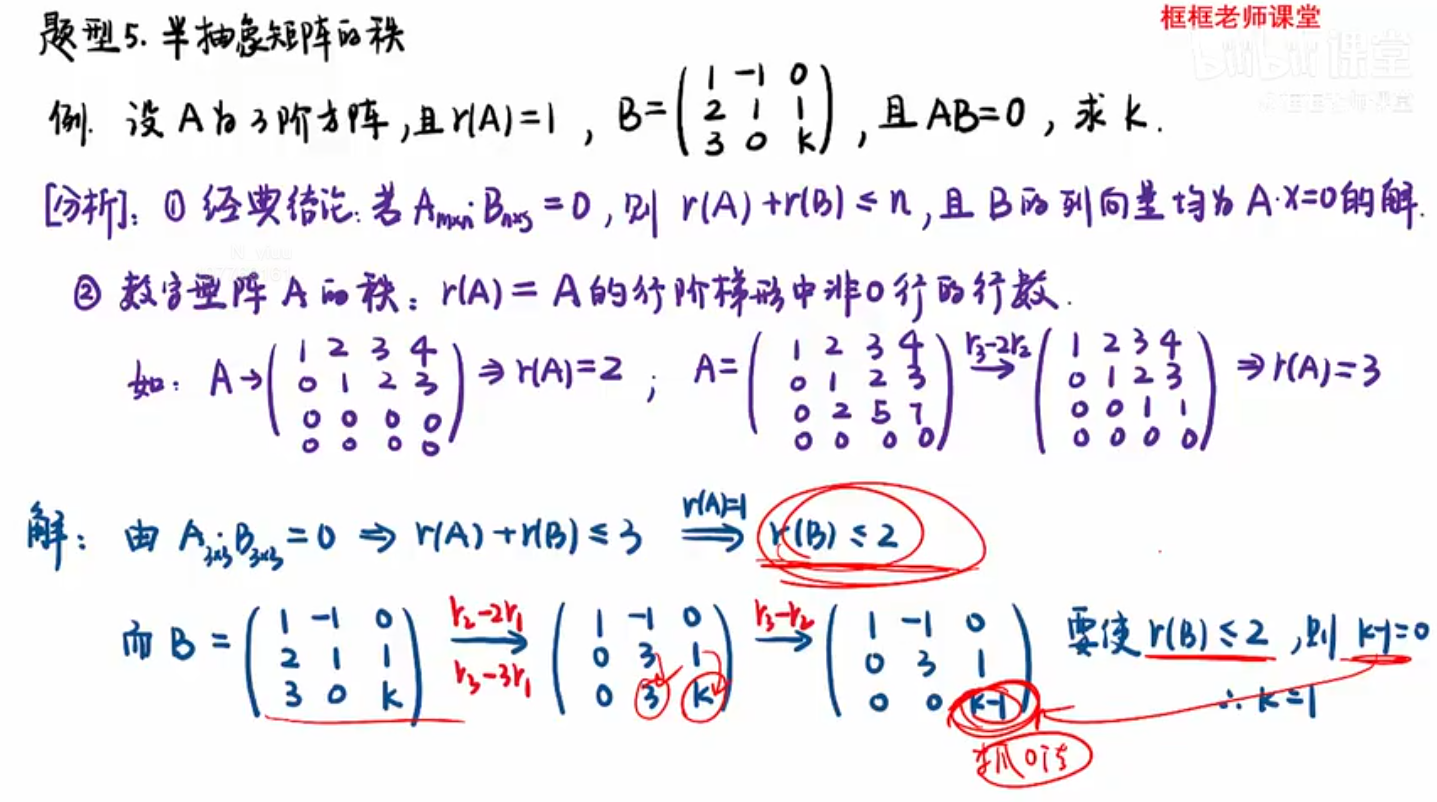 框框老师课堂
bilibili课堂
题型5. 半抽象矩阵的秩
例. 设 A为3阶方阵,且r(A)=1 , B=(1 -1 0
2 1 1
3 0 k) , 且 AB=0 , 求 k.
[分析]: ① 经典结论: 若 Am×n·Bn×s = 0 , 则 r(A)+r(B) ≤ n , 且 B的列向量均为 A·X=0的解.
② 数字型阵 A的秩: r(A) = A的行阶梯形中非0行的行数.
如: A→(1 2 3 4
0 1 2 3
0 0 0 0
0 0 0 0) ⇒ r(A)=2 ; A=(1 2 3 4
0 1 2 3
0 2 5 7
0 0 0 0) r3-2r2 → (1 2 3 4
0 1 2 3
0 0 1 1
0 0 0 0) ⇒ r(A)=3
解: 由 A3×3·B3×3=0 ⇒ r(A)+r(B) ≤ 3 r(A)=1 ⇒ r(B) ≤ 2
而 B = (1 -1 0
2 1 1
3 0 k) r2-2r1 r3-3r1 → (1 -1 0
0 3 1
0 3 k) r3-r2 → (1 -1 0
0 3 1
0 0 k-1) 要使 r(B) ≤ 2 , 则 k-1=0
∴ k=1
抓0行